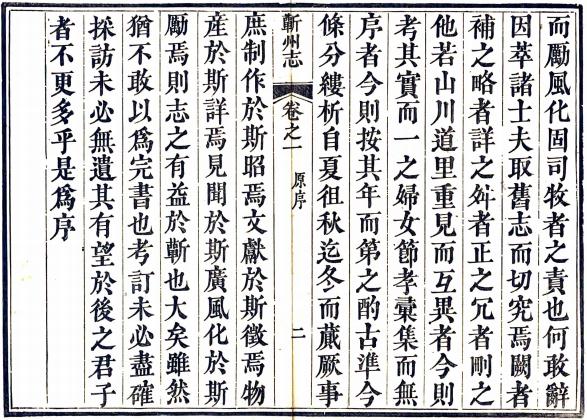 而勵風化固司牧者之責也何敢辭
因萃諸士夫取舊志而切究焉闕者
補之略者詳之舛者正之冗者刪之
他若山川道里重見而互異者今則
考其實而一之婦女節孝彙集而無
序者今則按其年而第之酌古準今
條分縷析自夏徂秋迄冬而蕆厥事
蘄州志
卷之一
原序
二
庶制作於斯昭焉文獻於斯徵焉物
產於斯詳焉見聞於斯廣風化於斯
勵焉則志之有益於蘄也大矣雖然
猶不敢以爲完書也考訂未必盡確
採訪未必無遺其有望於後之君子
者不更多乎是爲序